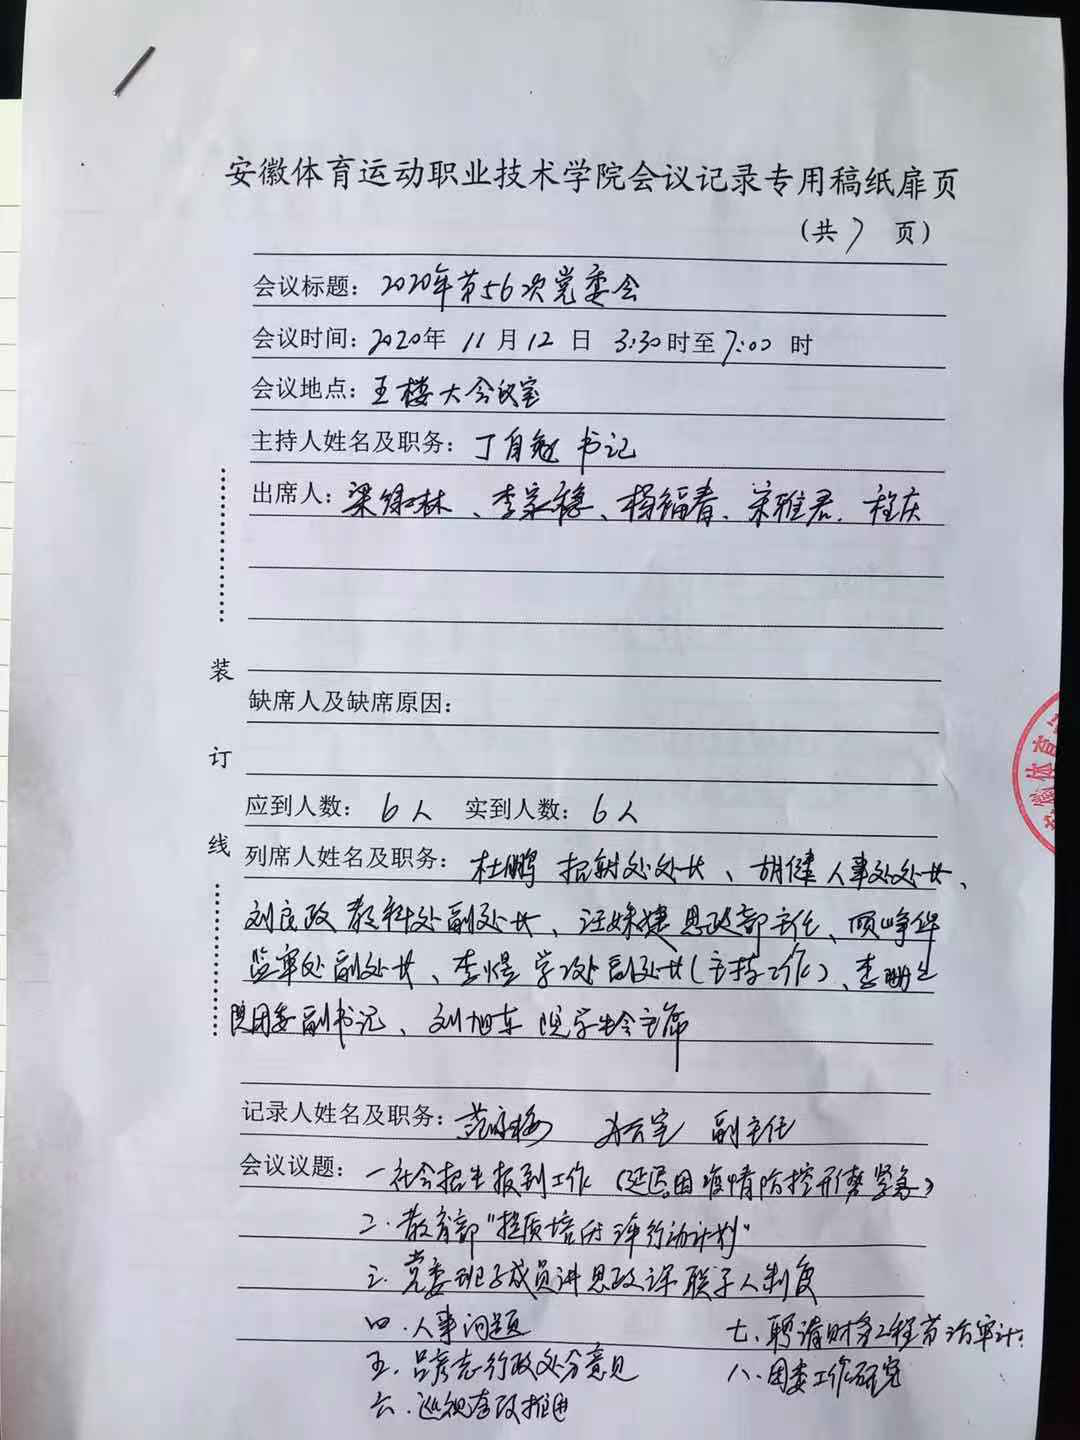 安徽体育运动职业技术学院会议记录专用稿纸扉页
(共7页)
会议标题：2020年第56次党委会
会议时间：2020年 11月12日 3:30时至7:00时
会议地点：主楼大会议室
主持人姓名及职务：丁自勉 书记
出席人：梁绿林、李家稳、杨福春、宋雅君、程庆
装
缺席人及缺席原因：
订
应到人数：6人 实到人数：6人
线
列席人姓名及职务：杜鹏 招就处处长、胡健 人事处处长、
刘应政 教科处副处长、汪姝婕 思政部主任、顾峥华
监审处副处长、李煜 学工处副处长(主持工作)、李
院团委副书记、刘旭东 院学生会主席
记录人姓名及职务：范 梅 办公室 副主任
会议议题：一.社会招生报到工作（延迟因疫情防控形势紧急）
二.教育部“提质培优 行动计划”
三.党委班子成员讲思政课联学人制度
四.人事问题
七.聘请财务工程 审计
五.吕彦志行政处分意见
八.团委工作研究
六.巡视整改推进
安徽体育